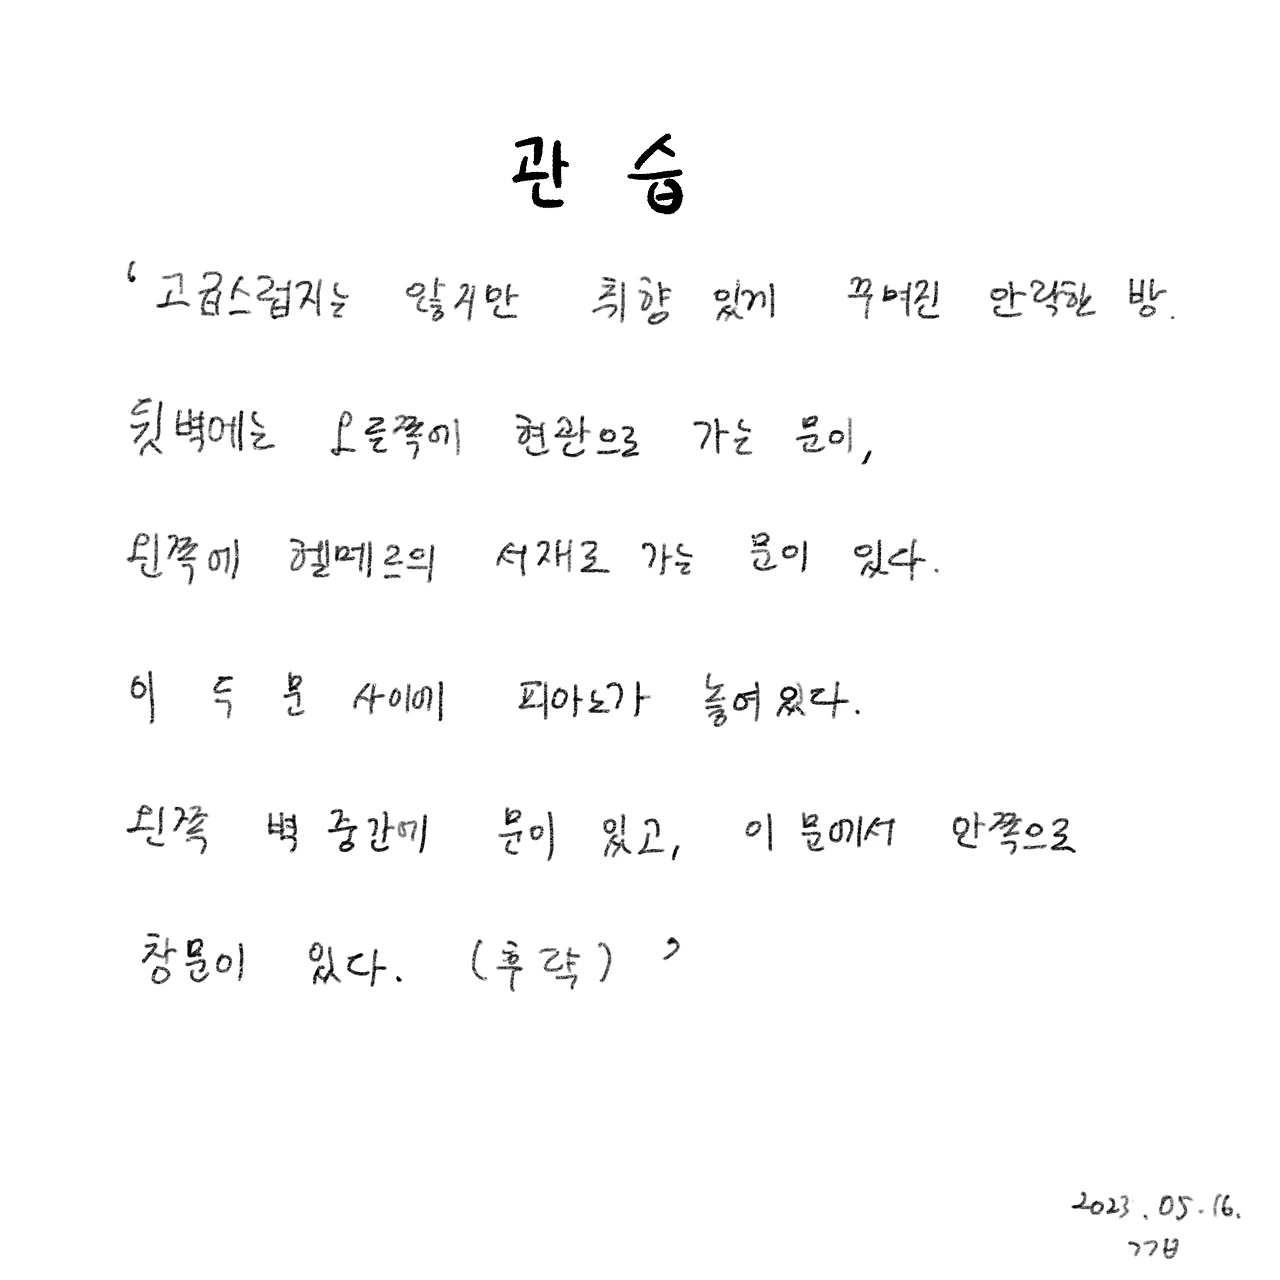 관습
‘고급스럽지는 않지만 취향 있게 꾸며진 안락한 방.
뒷벽에는 오른쪽에 현관으로 가는 문이,
왼쪽에 헬메르의 서재로 가는 문이 있다.
이 두 문 사이에 피아노가 놓여있다.
왼쪽 벽 중간에 문이 있고, 이 문에서 안쪽으로
창문이 있다. (후략)’
2023.05.16.
ㄱㄱㅂ